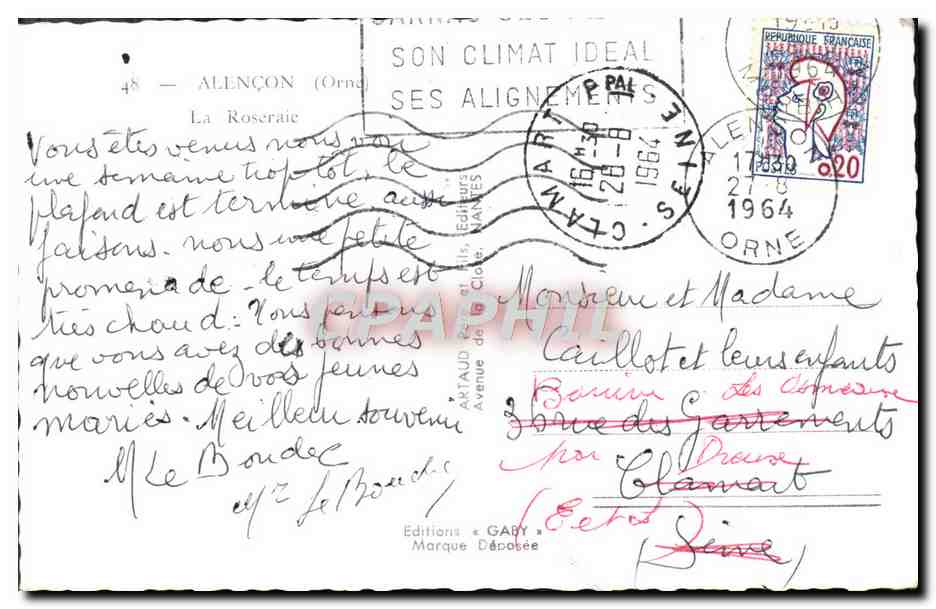 CARNAC
SON CLIMAT IDEAL
SES ALIGNEMENTS
48 — ALENÇON (Orne)
La Roseraie
Vous êtes venus nous voir
une semaine trop tôt, le
plafond est terminé aussi
faisons-nous une petite
promenade. le temps est
très chaud. Nous pensons
que vous avez des bonnes
nouvelles de vos jeunes
mariés. Meilleur souvenir
M Le Boudec
Mr Le Boudec
ARTAUD Père et Fils, Éditeurs
Avenue de la Close, NANTES
CPAPHIL
CLAMART PPAL
16H-30
28-8
1964
SEINE
1964
ALENÇON
17H30
27-8
1964
ORNE
REPUBLIQUE FRANÇAISE
POSTES
0,20
Monsieur et Madame
Caillot et leurs enfants
rue des Garrements
par Dreux
Clamart
(Seine)
Editions « GABY »
Marque Déposée